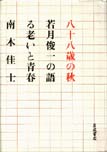 八十八歳の秋
若月俊一の語
る老いと青春
南木佳士